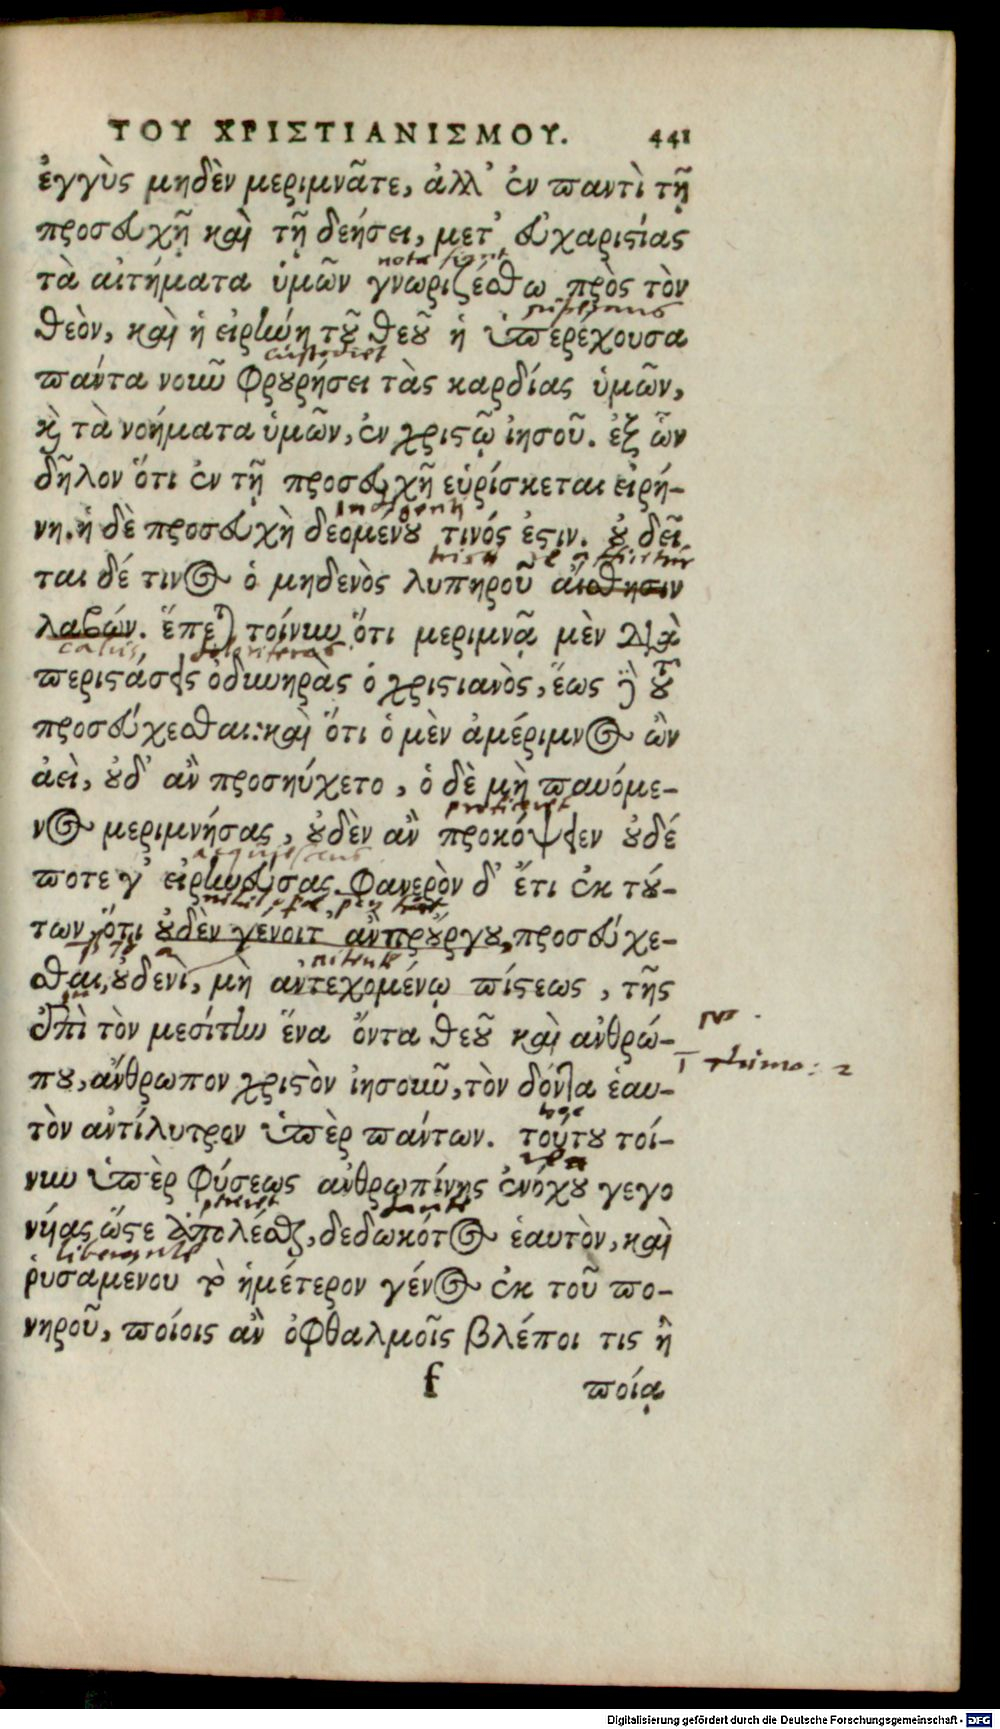 ΤΟΥ ΧΡΙΣΤΙΑΝΙΣΜΟΥ. 441
ἐγγὺς μηδὲν μεριμνᾶτε, ἀλλ’ ἐν παντὶ τῇ
προσευχῇ καὶ τῇ δεήσει, μετ’ εὐχαριστίας
nota sint
τὰ αἰτήματα ὑμῶν γνωριζέσθω πρὸς τὸν
θεὸν, καὶ ἡ εἰρήνη τοῦ θεοῦ ἡ ὑπερέχουσα
custodiet
πάντα νοῦν φρουρήσει τὰς καρδίας ὑμῶν,
καὶ τὰ νοήματα ὑμῶν, ἐν χριστῷ ἰησοῦ. ἐξ ὧν
δῆλον ὅτι ἐν τῇ προσευχῇ εὑρίσκεται εἰρή-
νη. ἡ δὲ προσευχὴ δεομένου τινός ἐστιν. οὐ δεῖ
ται δέ τινος ὁ μηδενὸς λυπηροῦ αἴσθησιν
λαβών. ἕπεται τοίνυν ὅτι μεριμνᾷ μὲν διὰ
περιστάσεις ὀδυνηρὰς ὁ χριστιανὸς, ἕως τοῦ
προσεύχεσθαι: καὶ ὅτι ὁ μὲν ἀμέριμνος ὢν
ἀεὶ, οὐδ’ ἂν προσηύχετο, ὁ δὲ μὴ παυόμε-
νος μεριμνήσας, οὐδὲν ἂν προκόψειεν οὐδέ
ποτε γ’ εἰρηνεύσας. Φανερὸν δ’ ἔτι ἐκ τού-
των, ὅτι οὐδὲν γένοιτ ἂν προύργου, προσεύχε-
σθαι, οὐδενὶ, μὴ ἀντεχομένῳ πίστεως, τῆς
ἐπὶ τὸν μεσίτην ἕνα ὄντα θεοῦ καὶ ἀνθρώ-
που, ἄνθρωπον χριστὸν ἰησοῦν, τὸν δόντα ἑαυ-
1 Thimo: 2
τὸν ἀντίλυτρον ὑπὲρ πάντων. τούτου τοί-
νυν ὑπὲρ φύσεως ἀνθρωπίνης ἐνόχου γεγο
νυίας ὥστε ἀπολέσθαι, δεδωκότος ἑαυτὸν, καὶ
liberante
ῥυσαμένου τὸ ἡμέτερον γένος ἐκ τοῦ πο-
νηροῦ, ποίοις ἂν ὀφθαλμοῖς βλέποι τις ἢ
f ποίᾳ
Digitalisierung gefördert durch die Deutsche Forschungsgemeinschaft - DFG